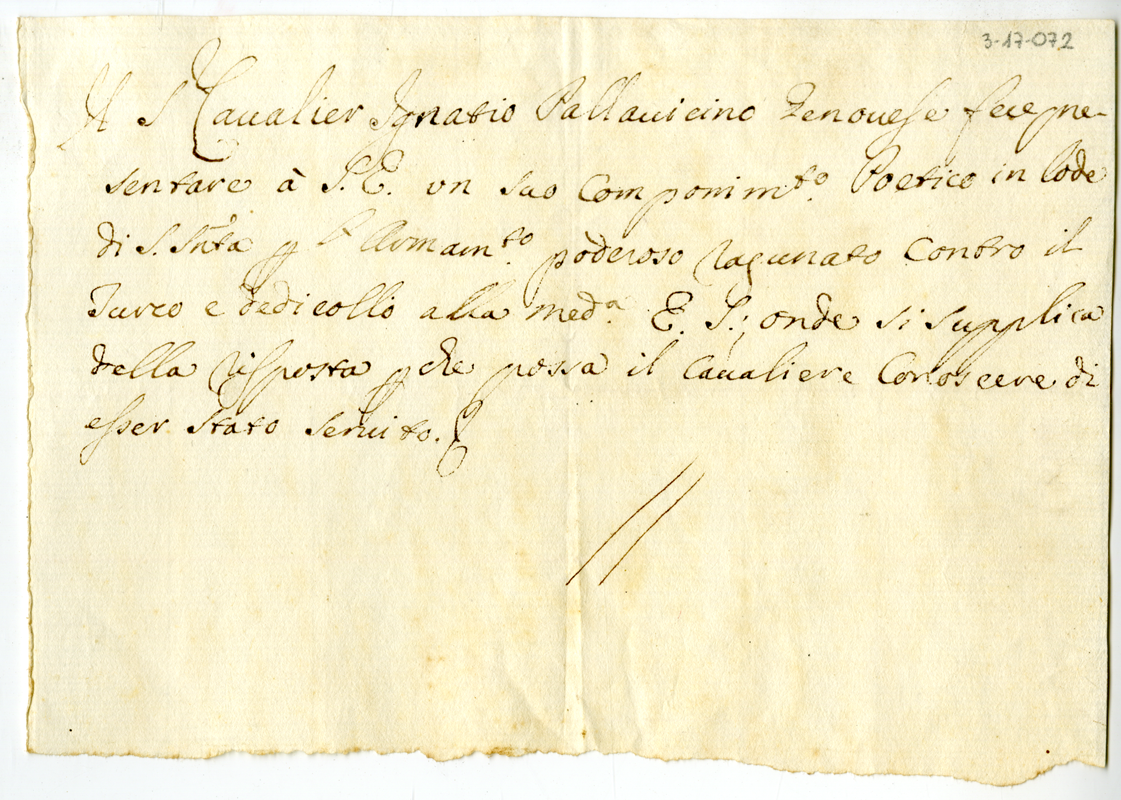 3-17-072
Il S. Cavalier Ignatio Pallavicino Zenovese fece pre-
sentare à S. E. un suo Componim.to Poetico in lode
di S. Sntà p l'Armam.to poderoso ragunato Contro il
Turco e dedicollo alla med.a E. S.; onde si supplica
della risposta p che possa il Cavaliere Conoscere di
esser stato servito.